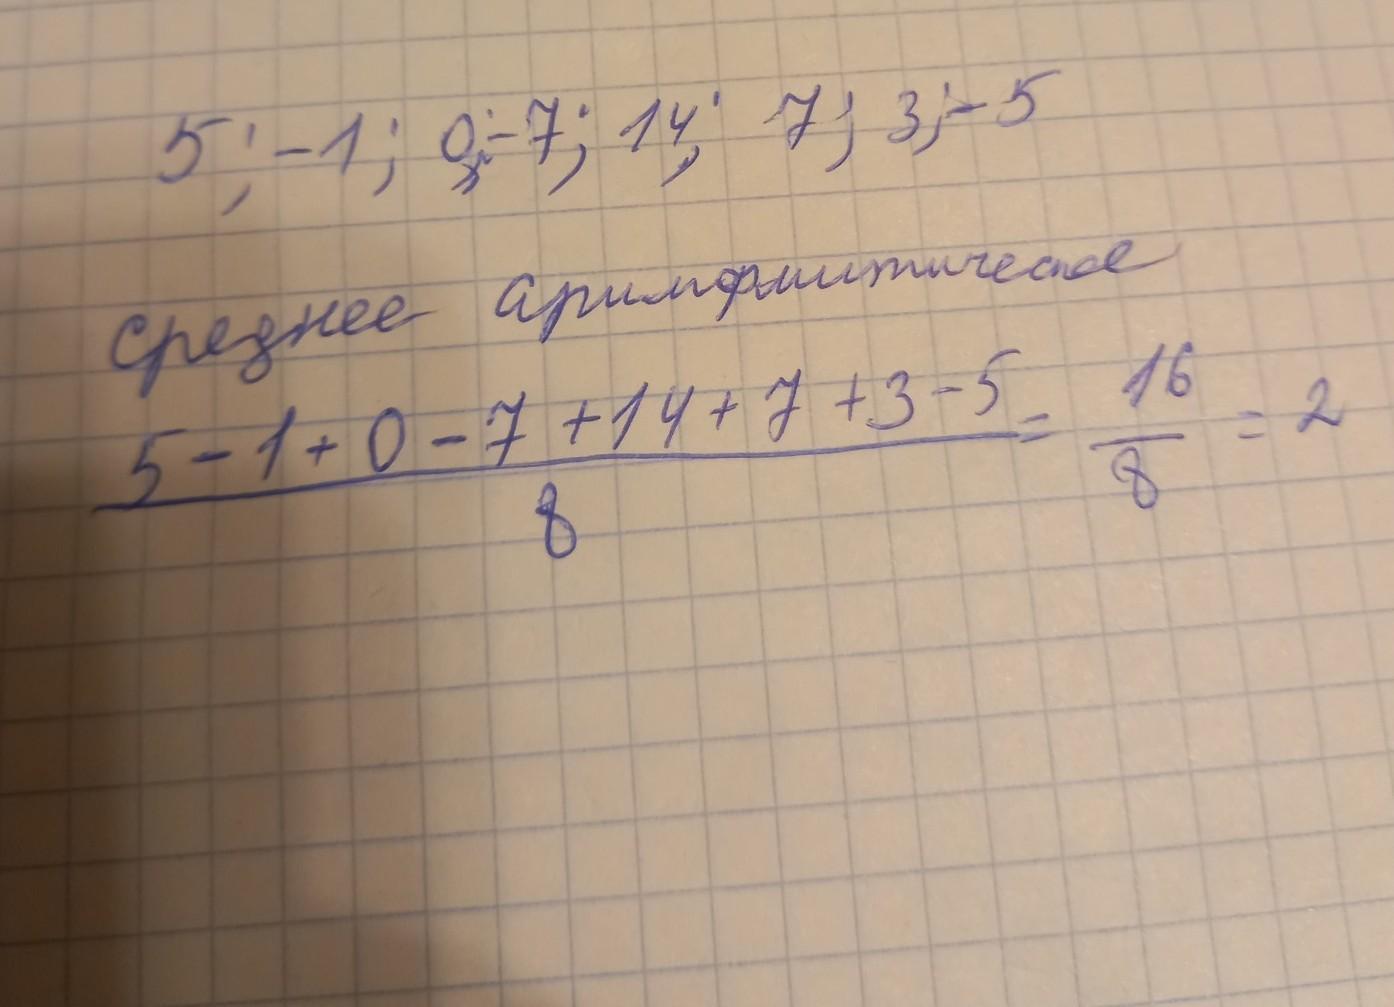 5; -1; 0; -7; 14; 7; 3; -5
Среднее аримфмитическое
5-1+0-7+14+7+3-5 / 8 = 16/8 = 2